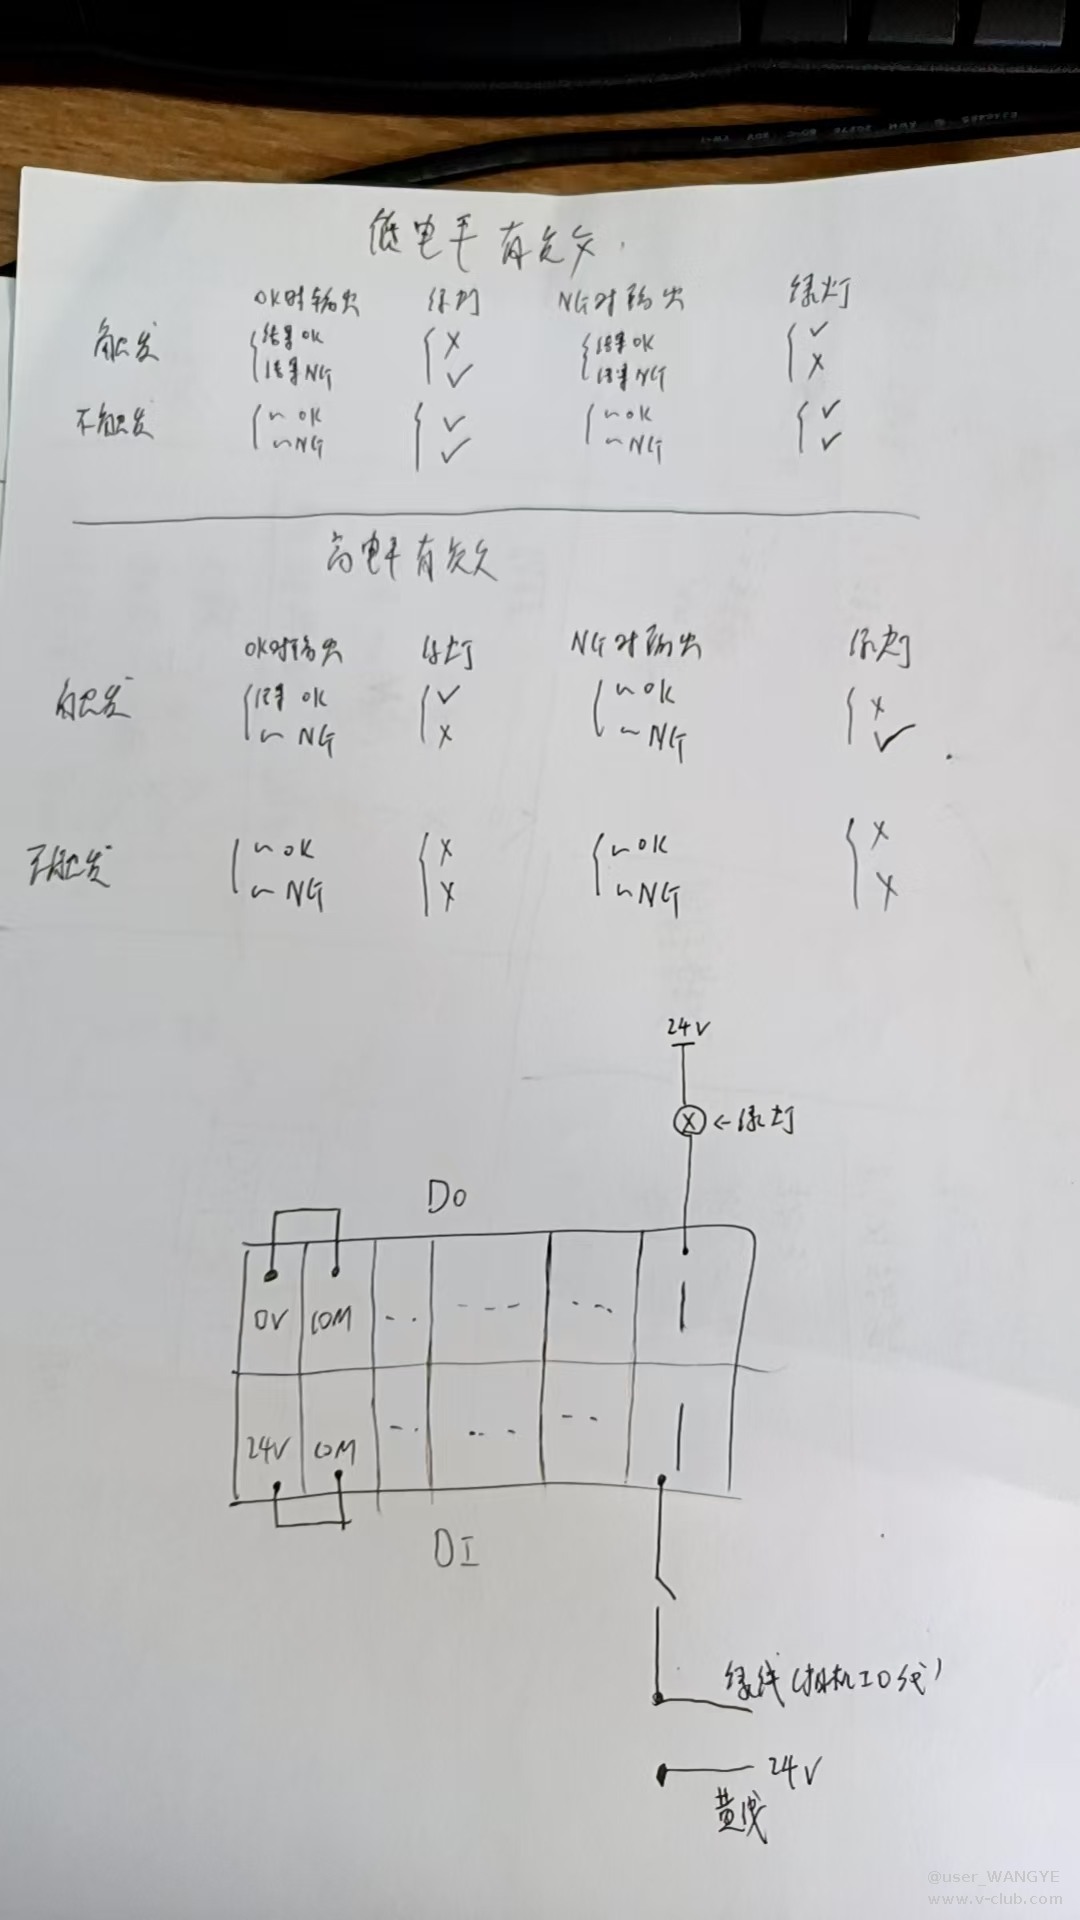 低电平有效
OK时输出 绿灯 NG时输出 绿灯
触发 结果OK × 结果OK ✓
结果NG ✓ 结果NG ×
不触发 ~OK ✓ ~OK ✓
~NG ✓ ~NG ✓
高电平有效
OK时输出 绿灯 NG时输出 绿灯
触发 结果OK ✓ ~OK ×
~NG × ~NG ✓
不触发 ~OK × ~OK ×
~NG × ~NG ×
24V
←绿灯
DO
0V COM -·· ---- -··· 1
24V COM -·· -·· -- 1
DI
绿线(相机IO线)
24V
黄线
@user_WANGYE
www.v-club.com